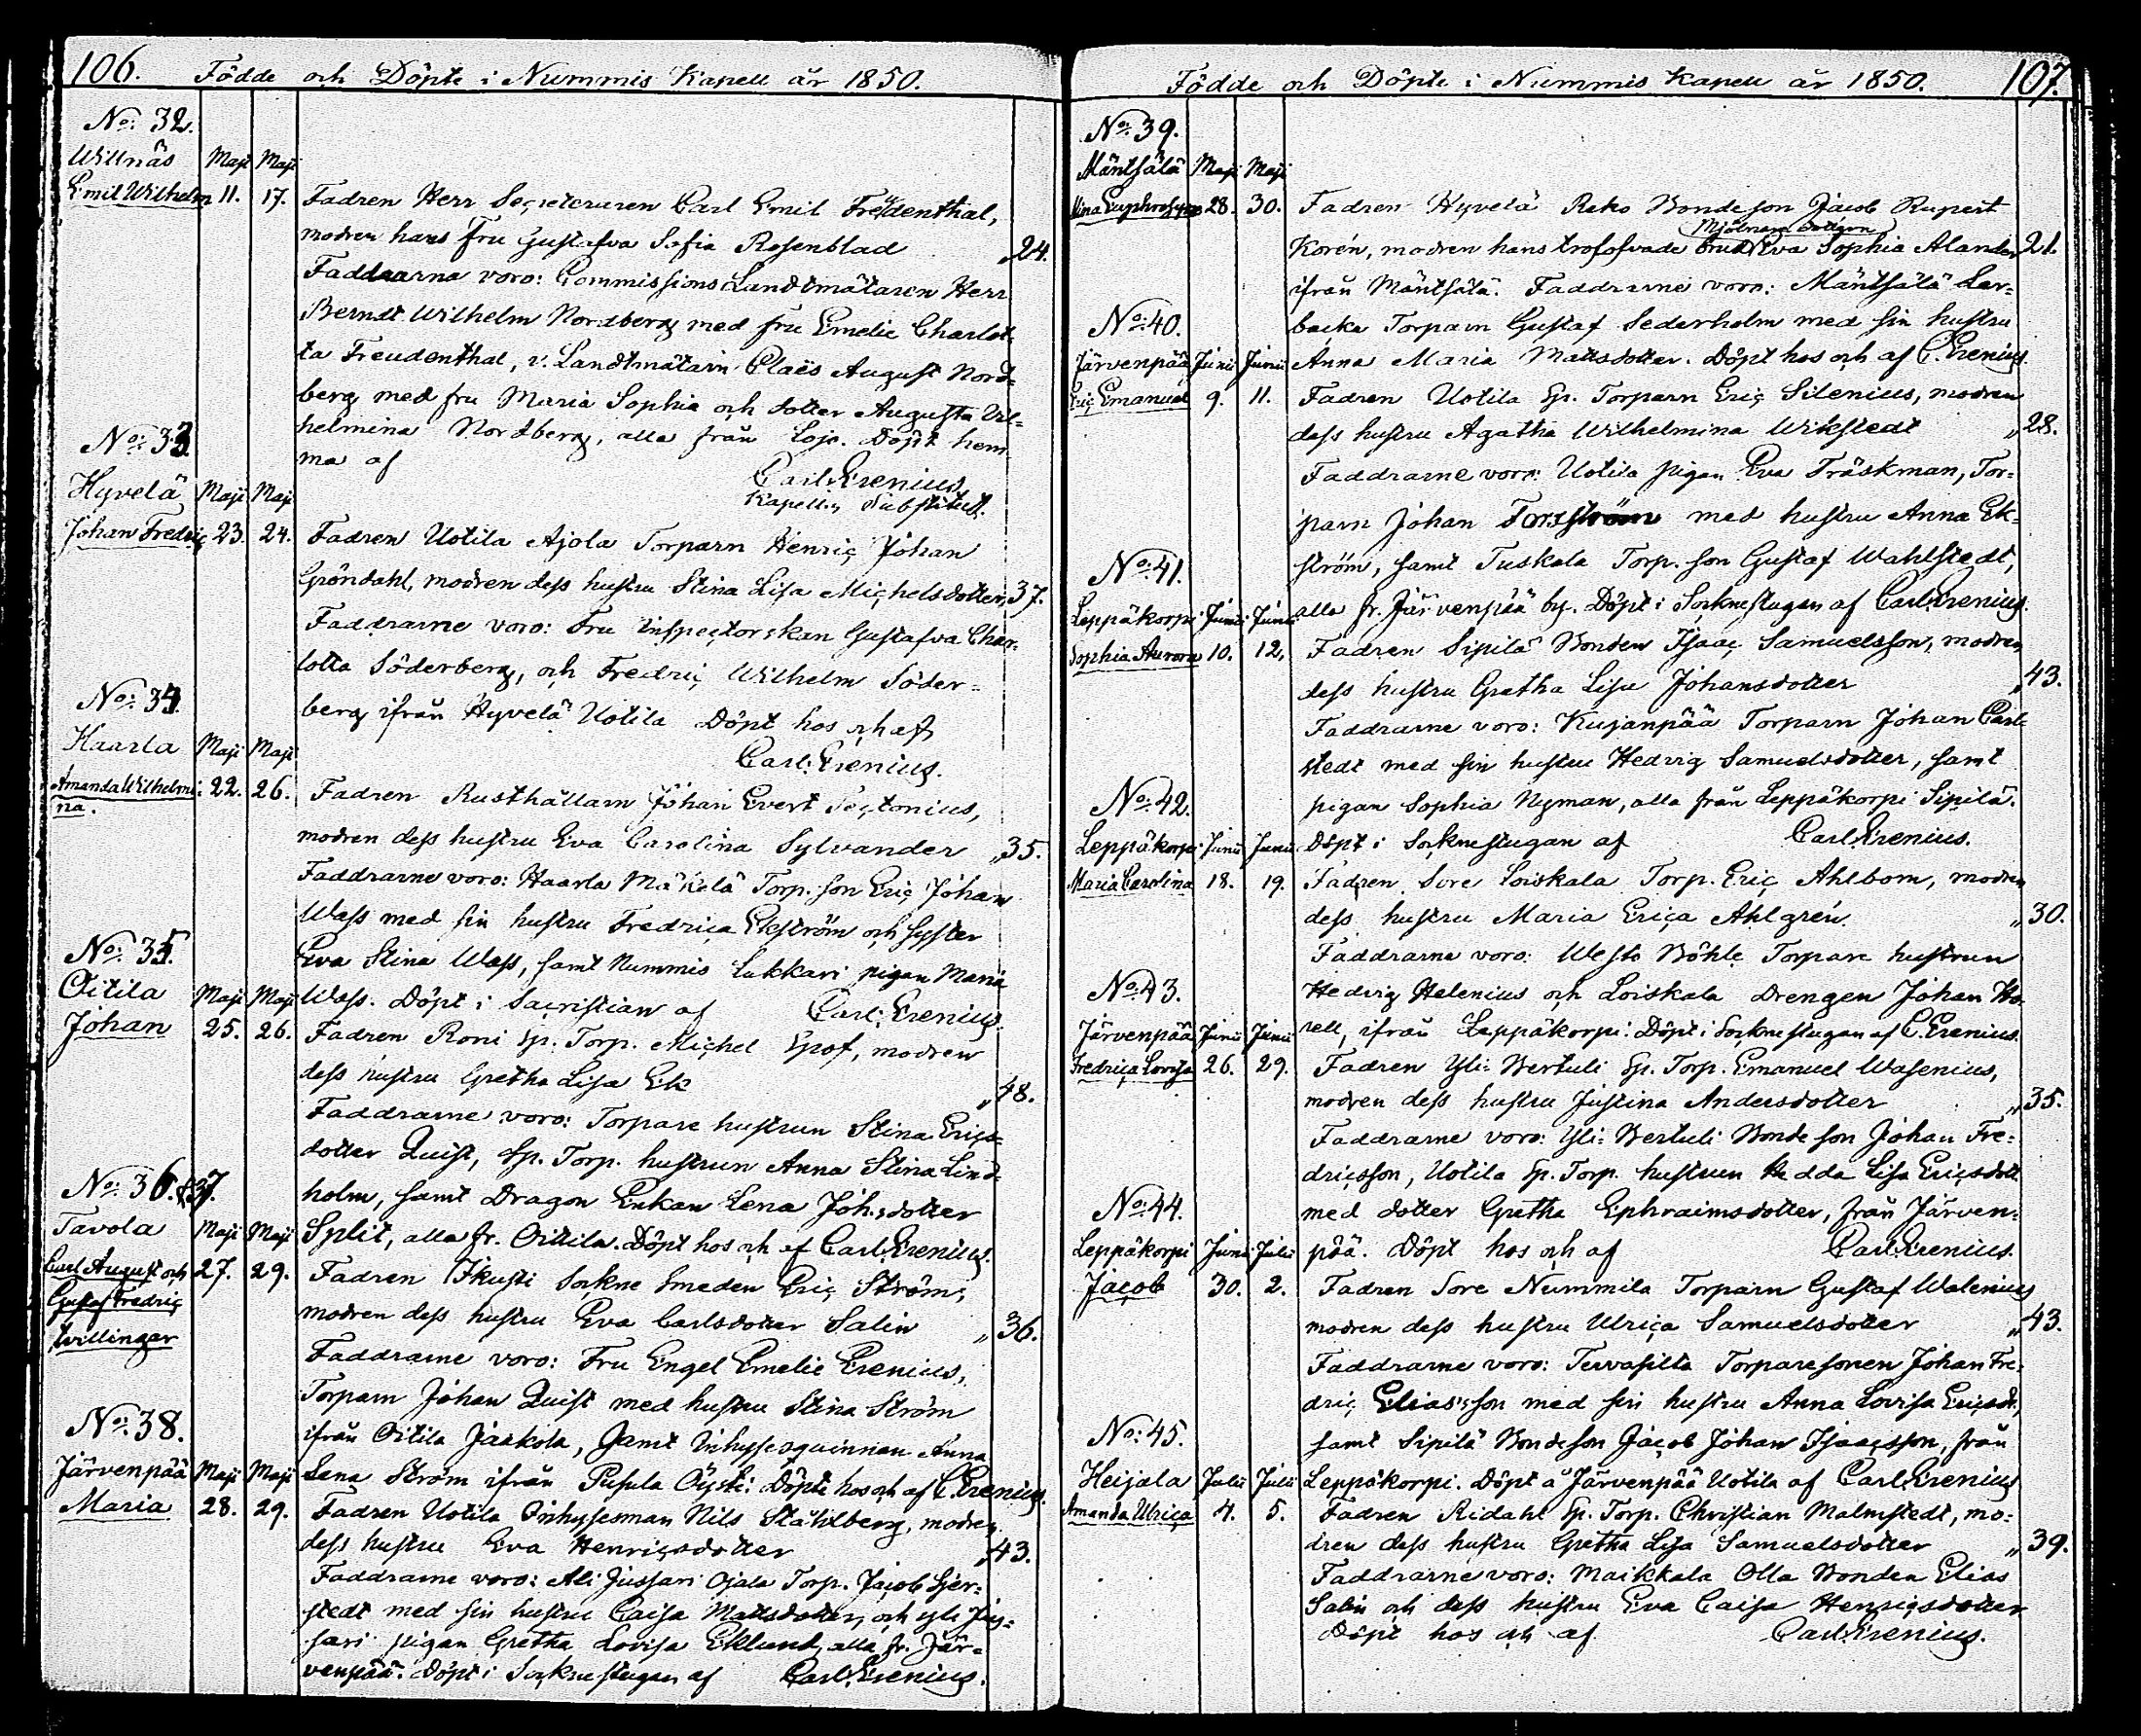 106. Födde och Döpte i Nummis Kapell år 1850.
No: 32.
Willnäs Maji Maji
Emil Wilhelm 11. 17. Fadren Herr Secreteraren Carl Emil Freudenthal,
modren hans fru Gustafva Sofia Rosenblad „24.
Faddrarna voro: Commissions Landtmätaren Herr
Berndt Wilhelm Nordberg med fru Emelie Charlot-
ta Freudenthal, v. Landtmätarn Claës August Nord=
berg med fru Maria Sophia och dotter Augusta Vil=
helmina Nordberg, alla från Lojo. Döpt hem
ma af Carl Erenius
Kapell:s Substitut.
No: 33.
Hyvelä Maji Maji
Johan Fredric 23. 24. Fadren Uotila Ajola Torparn Henric Johan
Gröndahl, modren dess hustru Stina Lisa Michelsdotter „37.
Faddrarne voro: Fru Inspectorskan Gustafva Char=
lotta Söderberg, och Fredric Wilhelm Söder=
berg ifrån Hyvelä Uotila Döpt hos och af
Carl Erenius.
No: 34.
Haarla Maji Maji
Amanda Wilhelmi= 22. 26. Fadren Rusthållarn Johan Evert
na.
modren dess hustru Eva Carolina Sylvander „35.
Faddrarne voro: Haarla Mäkelä Torp. son Eric Johan
Wass med sin hustru Fredrica Ekström och syster
Eva Stina Wass, samt Nummis Lukkari pigan Maria
Wass. Döpt i Sacristian af Carl Erenius.
No: 35.
Oitila Maji Maji
Johan 25. 26. Fadren Roni Sp. Torp. Michel Grof, modren
dess hustru Gretha Lisa Ek „48.
Faddrarne voro: Torpare hustrun Stina Erics=
dotter Quist, Sp. Torp. hustrun Anna Stina Lind=
holm, samt Dragon Enkan Lena Joh:sdotter
Split, alla fr. Oitila. Döpt hos och af Carl Erenius.
No: 36. & 37.
Tavola Maji Maji
Carl August och 27. 29. Fadren Ikusti Sockne smeden Eric Ström,
Gustaf Fredric
tvillingar
modren dess hustru Eva Carlsdotter Salin „36.
Faddrarne voro: Fru Engel Emelie Erenius,
Torparn Johan Quist med hustru Stina Ström
ifrån Oitila Jaakola, samt Inhyses qvinnan Anna
Lena Ström ifrån Pusula Döpte hos och af C. Erenius.
No: 38.
Järvenpää Maji Maji
Maria 28. 29. Fadren Uotila Inhysesman Nils Ståhlberg, modren
dess hustru Eva Henricsdotter „43.
Faddrarne voro: Ali Jussari Ojala Torp. Jacob Gjer=
stedt med sin hustru Caisa Mattsdotter, och Yli Jus=
sari pigan Gretha Lovisa Eklund, alla fr. Jär=
venpää. Döpt i Socknestugan af Carl Erenius.
Födde och Döpte i Nummis Kapell år 1850. 107.
No: 39.
Mäntsälä Maji Maji
Mina Euphrosyne 28. 30. Fadren Hyvelä Reko Bonde son Jacob Rupert
Mjölnare dottern
Korén, modren hans trolofvade brud Eva Sophia Alander 21.
ifrån Mäntsälä. Faddrarne voro: Mäntsälä Ler=
backa Torparn Gustaf Sederholm med sin hustru
Anna Maria Mattsdotter. Döpt hos och af C. Erenius.
No: 40.
Järvenpää Junii Junii
Eric Emanuel 9. 11. Fadren Uotila Sp. Torparn Eric Silenius, modren
dess hustru Agatha Wilhelmina Wikstedt „28.
Faddrarne voro: Uotila pigan Eva Träskman, Tor=
parn Johan Forsström med hustru Anna Ek=
ström, samt Tuskala Torp. son Gustaf Wahlstedt,
alla fr. Järvenpää by. Döpt i Socknestugan af Carl Erenius.
No: 41.
Leppäkorpi Junii Junii
Sophia Aurora 10. 12. Fadren Sipilä Bonden Isaac Samuelsson, modren
dess hustru Gretha Lisa Johansdotter „43.
Faddrarne voro: Kujanpää Torparn Johan Carl=
stedt med sin hustru Hedvig Samuelsdotter, samt
pigan Sophia Nyman, alla från Leppäkorpi Sipilä.
Döpt i Socknestugan af Carl Erenius.
No: 42.
Leppäkorpi Junii Junii
Maria Carolina 18. 19. Fadren Sore Loiskala Torp. Eric Ahlbom, modren
dess hustru Maria Erica Ahlgrén. „30.
Faddrarna voro: Westo Böhle Torpare hustrun
Hedvig Helenius och Loiskala Drengen Johan Ho=
rell, ifrån Leppäkorpi. Döpt i Socknestugan af C. Erenius.
No: 43.
Järvenpää Junii Junii
Fredrica Lovisa 26. 29. Fadren Yli= Bertuli Sp. Torp. Emanuel Wasenius,
modren dess hustru Justina Andersdotter „35.
Faddrarne voro: Yli= Bertuli Bonde son Johan Fre=
dricsson, Uotila Sp. Torp. hustrun Hedda Lisa Ericsdott.
med dotter Gretha Ephraimsdotter, från Järven=
pää. Döpt hos och af Carl Erenius.
No: 44.
Leppäkorpi Junii Julii
Jacob 30. 2. Fadren Sore Nummila Torparn Gustaf Walenius
modren dess hustru Ulrica Samuelsdotter „43.
Faddrarne voro: Tervasilta Torparesonen Johan Fre=
dric Eliasson med sin hustru Anna Lovisa Ericsdr,
samt Sipilä Bondeson Jacob Johan Isaacsson, från
Leppäkorpi. Döpt å Järvenpää Uotila af Carl Erenius
No: 45.
Heijala Julii Julii
Amanda Ulrica 4. 5. Fadren Ridahl Sp. Torp. Christian Malmstedt, mo=
dren dess hustru Gretha Lisa Samuelsdotter „39.
Faddrarne voro: Maikkala Olla Bonden Elias
Salin och dess hustru Eva Caisa Henricsdotter
Döpt hos och af Carl Erenius.